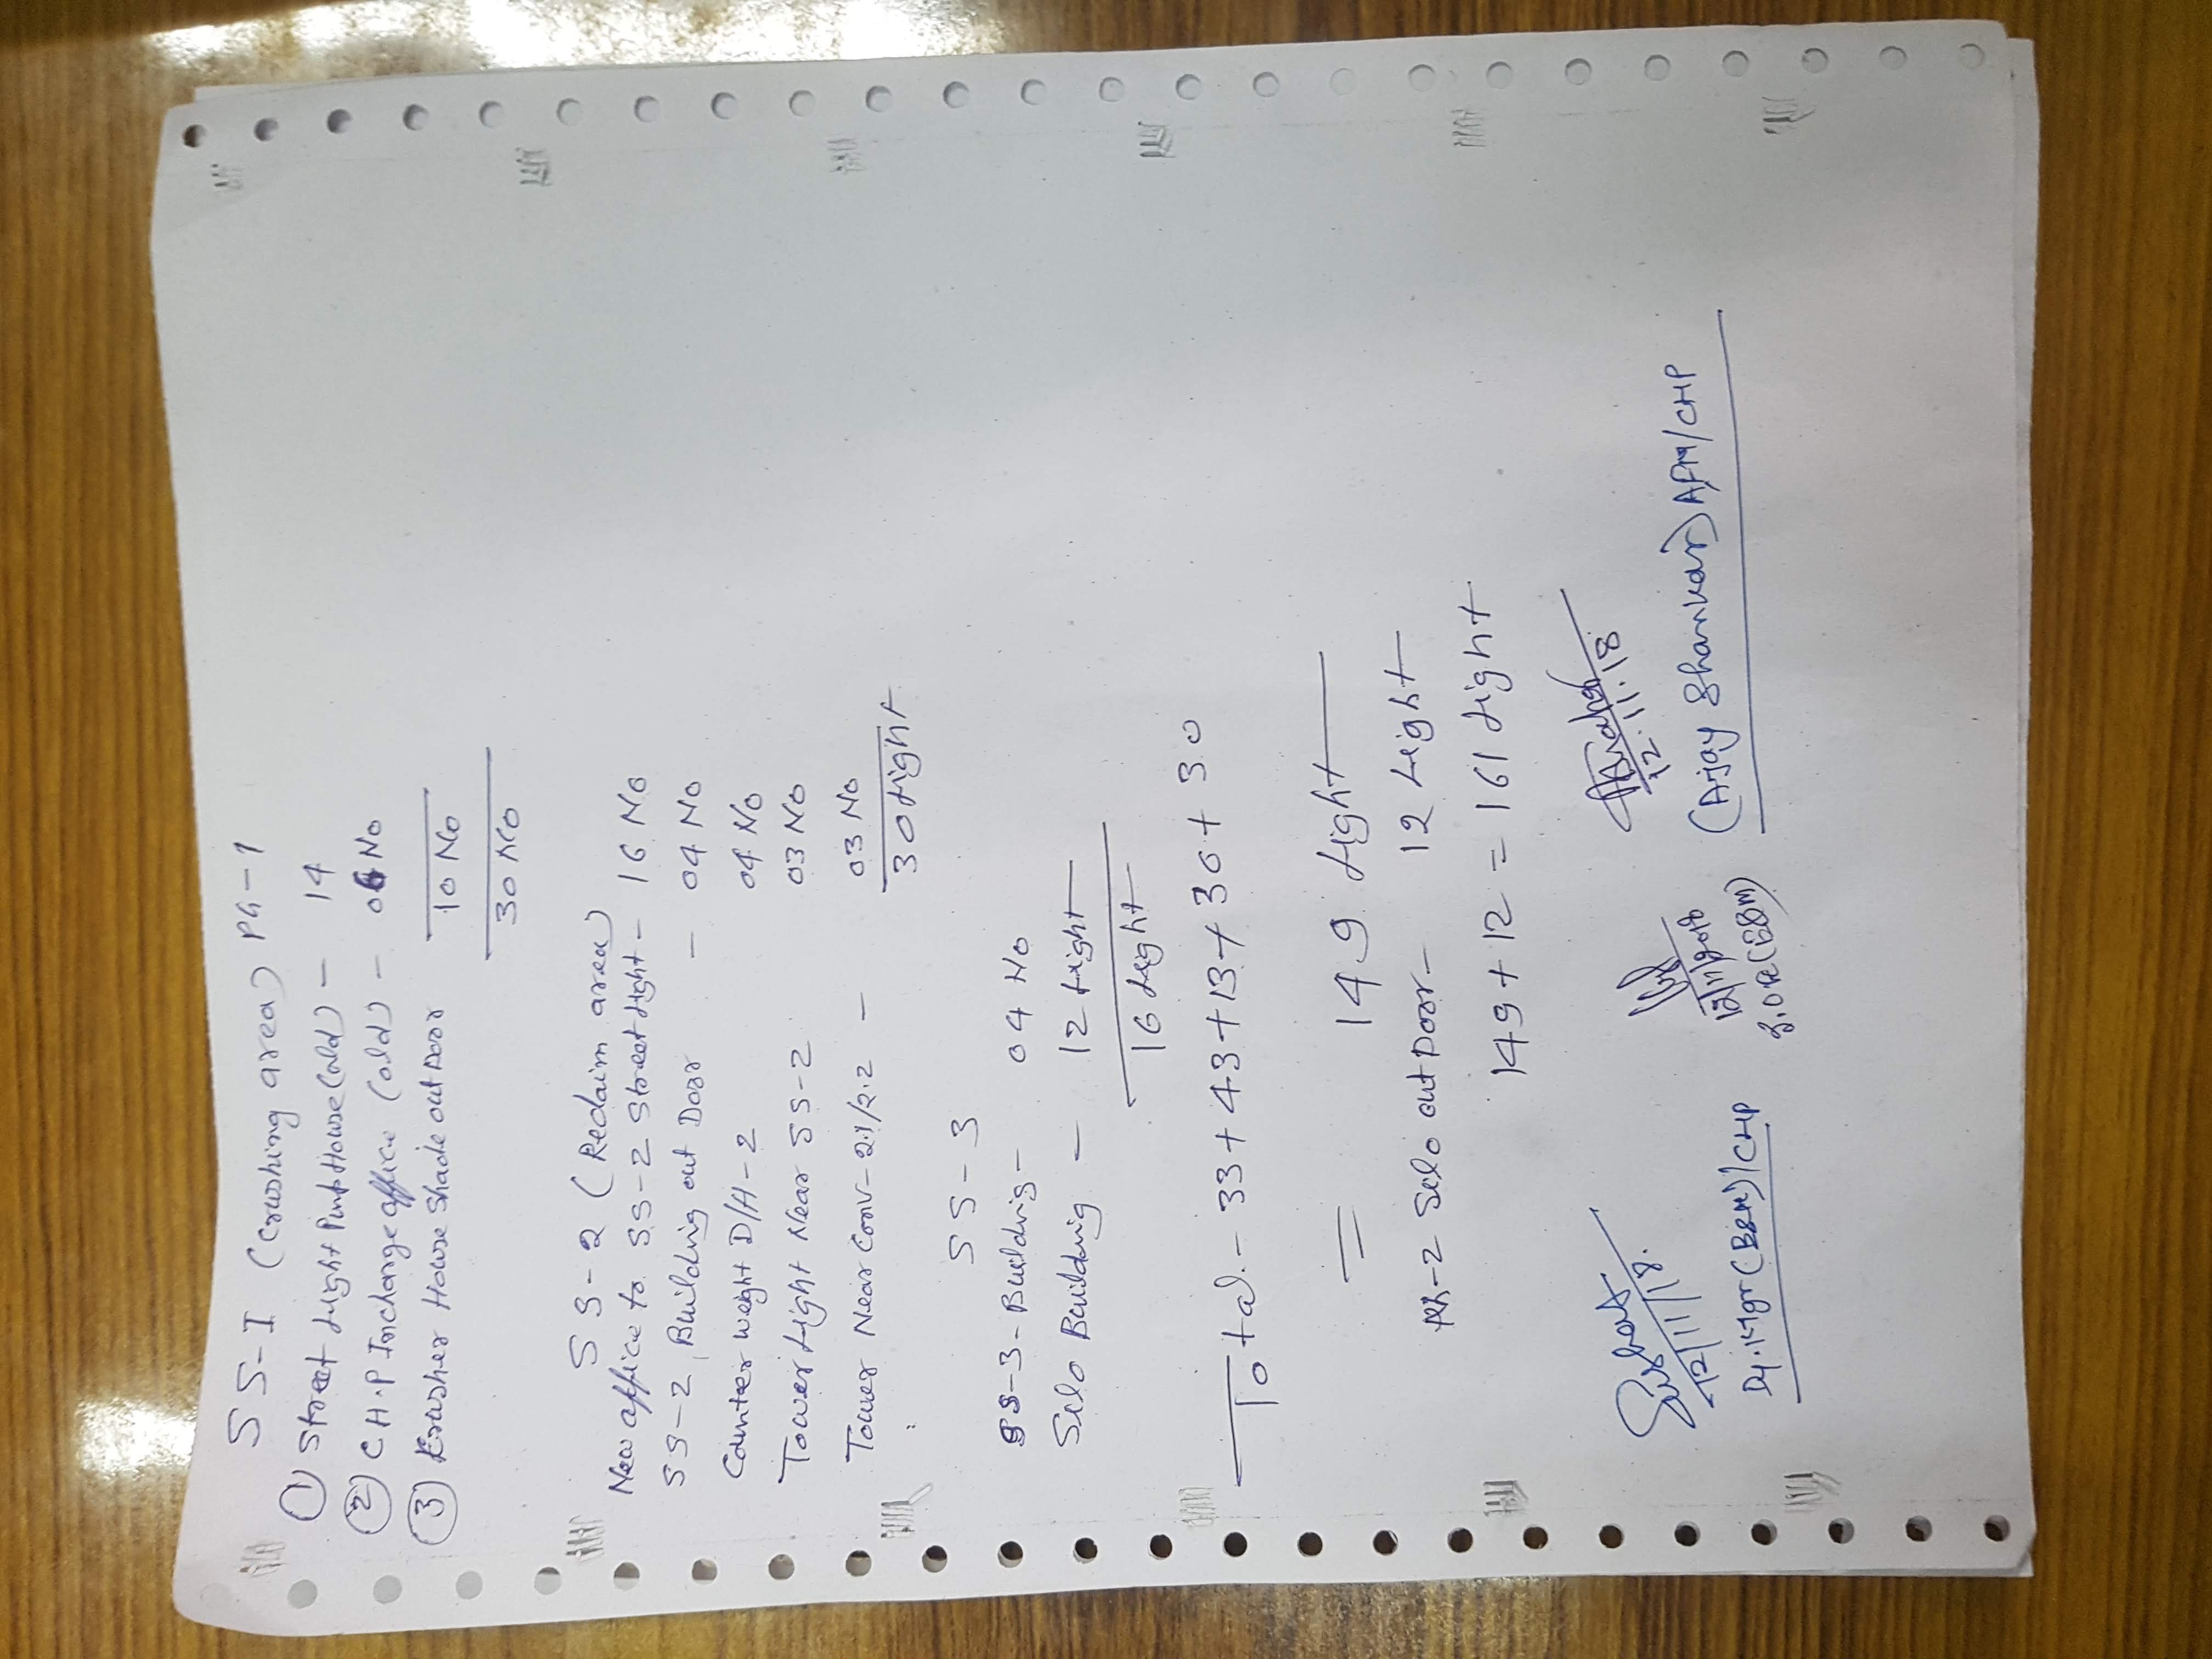 SS-I (Crushing area) PG-1
① Street Light Pump House (old) - 14
② C.H.P Incharge office (old) - 06 No
③ Krusher House Shade out Door 10 No
30 No
SS-2 (Reclaim area)
New office to SS-2 Street Light - 16 No
SS-2, Building out Door - 04 No
Counter Weight D/H-2 04 No
Tower Light Near SS-2 03 No
Tower Near Conv-2.1/2.2 - 03 No
30 Light
SS-3
SS-3-Building - 04 No
Silo Building - 12 Light
16 Light
Total - 33+43+13+30+30
= 149 Light
Ph-2 Silo out Door - 12 Light
149+12 = 161 Light
12/11/18.
Dy.Mgr (B&M)/CHP
12/11/2018
12.11.18
(Ajay Shankar) APM/CHP